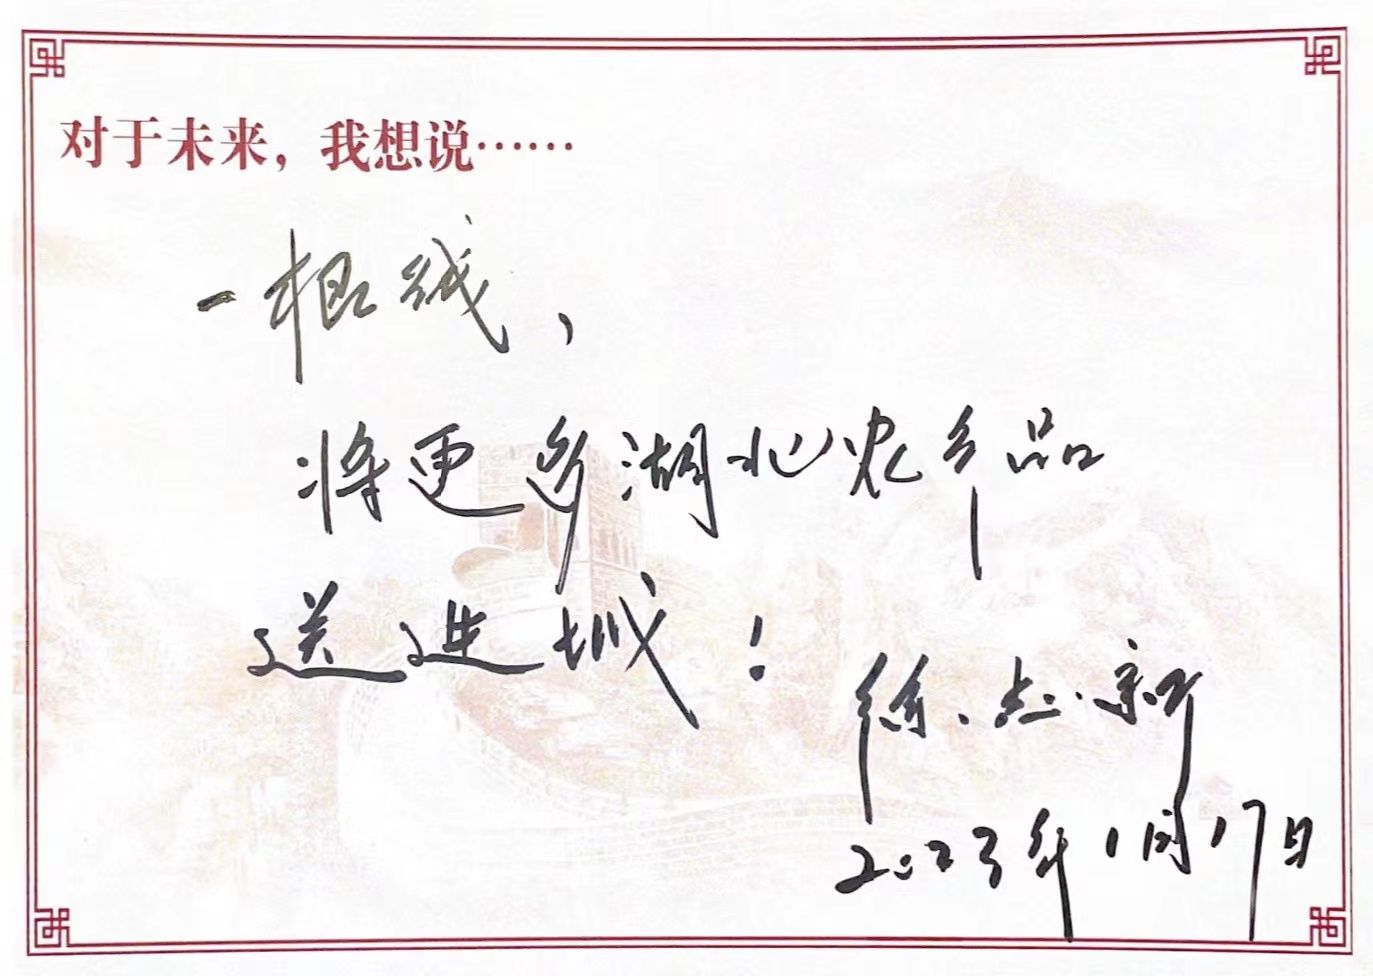 对于未来，我想说……
一根线，
将更多湖北农产品
送进城！
徐志新
2023年1月17日